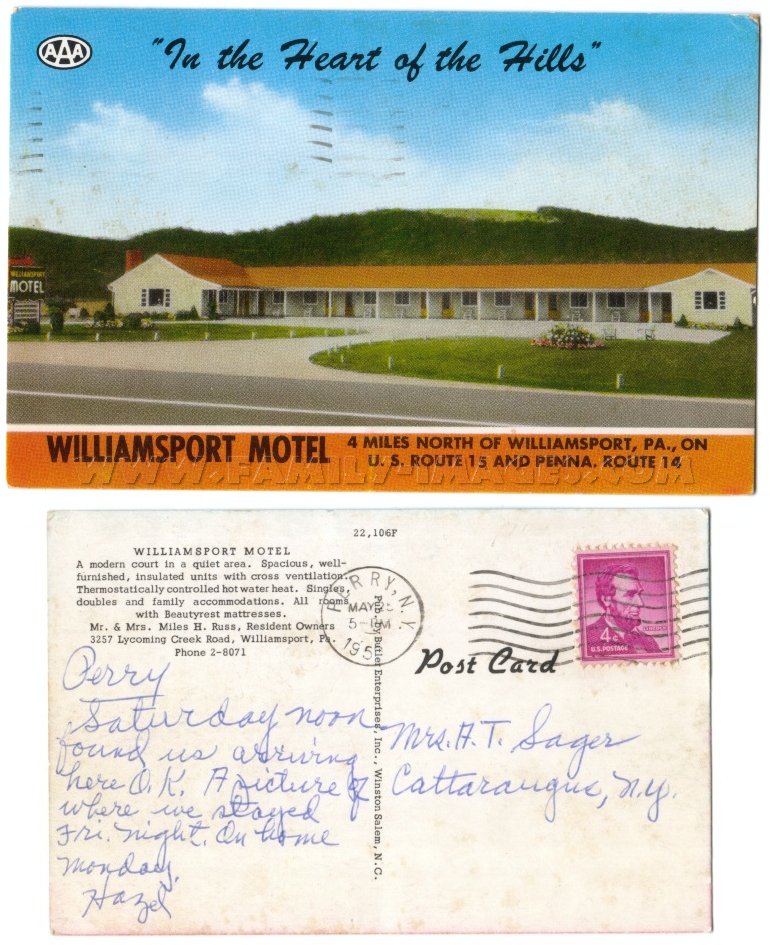 AAA
"In the Heart of the Hills"
WILLIAMSPORT
MOTEL
WILLIAMSPORT MOTEL
4 MILES NORTH OF WILLIAMSPORT, PA., ON
U. S. ROUTE 15 AND PENNA. ROUTE 14
WWW.FAMILY-IMAGES.COM
22,106F
WILLIAMSPORT MOTEL
A modern court in a quiet area. Spacious, well-
furnished, insulated units with cross ventilation.
Thermostatically controlled hot water heat. Singles,
doubles and family accommodations. All rooms
with Beautyrest mattresses.
Mr. & Mrs. Miles H. Russ, Resident Owners
3257 Lycoming Creek Road, Williamsport, Pa.
Phone 2-8071
PERRY, N.Y.
MAY
5-PM
195
4¢
LINCOLN
U.S. POSTAGE
Post Card
Pub. by Butler Enterprises, Inc., Winston Salem, N.C.
Perry
Saturday noon
found us arriving
here O.K. A picture of
where we stayed
Fri. night. On home
Monday.
Hazel
Mrs. A. T. Sager
Cattaraugus, N.Y.